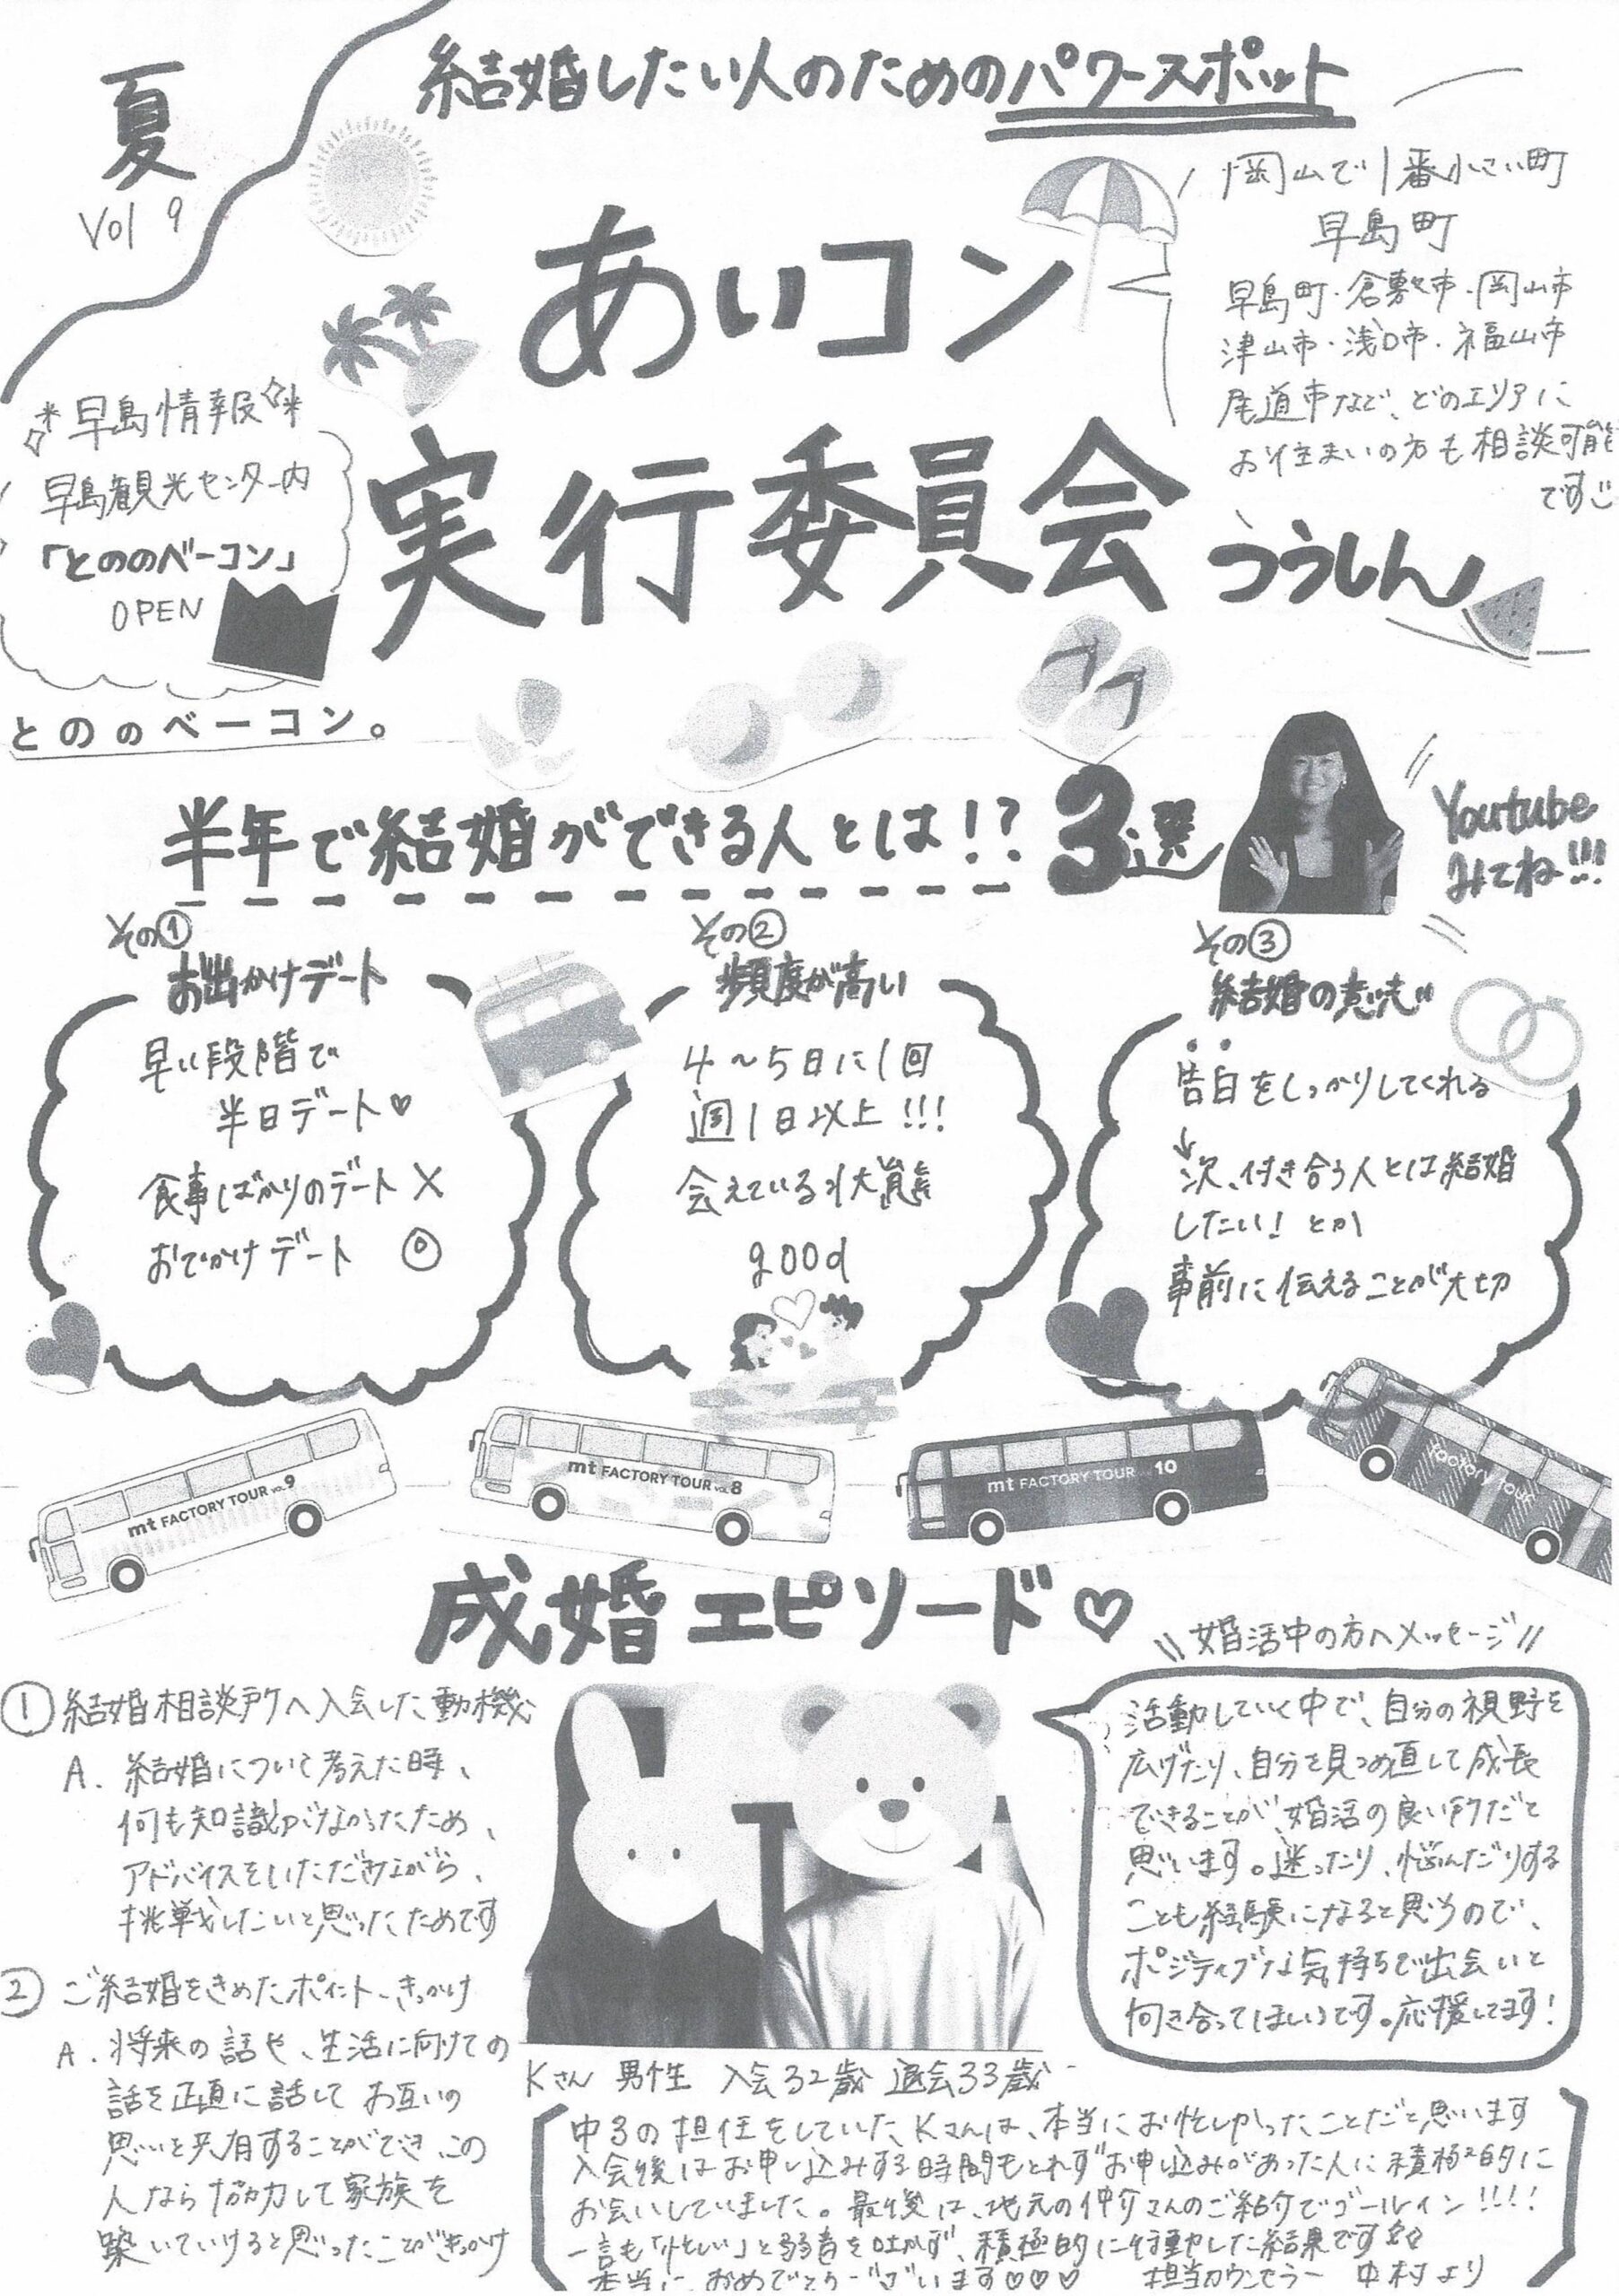 夏
Vol 9
結婚したい人のためのパワースポット
あいコン
実行委員会
つうしん
岡山で1番小さい町
早島町
早島町・倉敷市・岡山市
津山市・浅口市・福山市
尾道市など、どのエリアに
お住まいの方も相談可能
です
早島情報
早島観光センター内
「とののベーコン」
OPEN
とののベーコン。
半年で結婚ができる人とは!? 3選
Youtube
みてね!!!
その①
お出かけデート
早い段階で
半日デート♡
食事ばかりのデート ×
おでかけデート ◎
その②
頻度が高い
4〜5日に1回
週1日以上!!!
会えている状態
good
その③
結婚の意志
告白をしっかりしてくれる
↓
次、付き合う人とは結婚
したい! とか
事前に伝えることが大切
mt FACTORY TOUR VOL.9
mt FACTORY TOUR VOL.8
mt FACTORY TOUR 10
factory tour
成婚エピソード♡
① 結婚相談所へ入会した動機
A. 結婚について考えた時、
何も知識がなかったため、
アドバイスをいただきながら、
挑戦したいと思ったためです
② ご結婚をきめたポイント、きっかけ
A. 将来の話や、生活に向けての
話を正直に話して お互いの
思いを共有することができ、この
人なら協力して家族を
築いていけると思ったことがきっかけ
\\ 婚活中の方へメッセージ //
活動していく中で、自分の視野を
広げたり、自分を見つめ直して成長
できることが、婚活の良い所だと
思います。迷ったり、悩んだりする
ことも経験になると思うので、
ポジティブな気持ちで出会いと
向き合ってほしいです。応援してます!
Kさん 男性 入会32歳 退会33歳
中3の担任をしていたKさんは、本当にお忙しかったことだと思います
入会後はお申し込みする時間もとれずお申し込みがあった人に積極的に
お会いしていました。最後は、地元の仲介さんのご紹介でゴールイン!!!!
一言も「しんどい」と弱音を吐かず、積極的に行動した結果です
本当に おめでとうございます♡♡♡ 担当カウンセラー 中村より